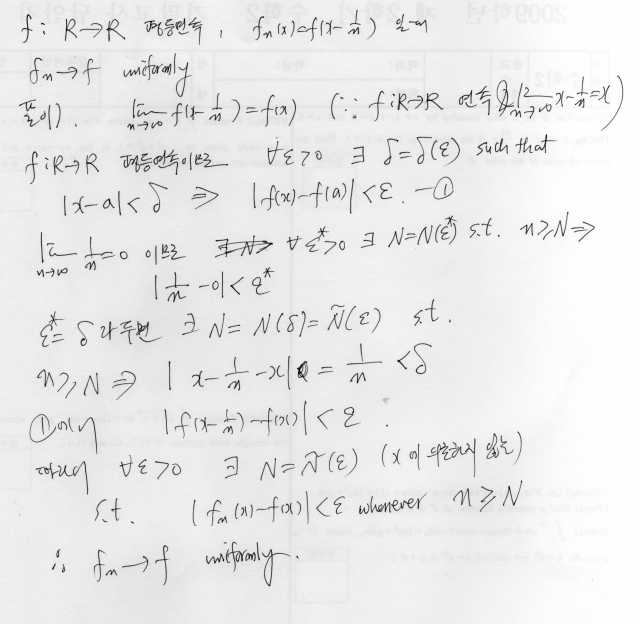 f : R→R 평등연속, fₙ(x)=f(x-1/n) 일때
fₙ→f uniformly
풀이). lim_{n→∞} f(x-1/n)=f(x) (∵ f:R→R 연속 lim_{n→∞} x-1/n=x)
f:R→R 평등연속이므로 ∀ε>0 ∃ δ=δ(ε) such that
|x-a|<δ ⇒ |f(x)-f(a)|<ε. -①
lim_{n→∞} 1/n=0 이므로 ∀ε*>0 ∃ N=N(ε*) s.t. n≥N⇒
|1/n -0|<ε*
ε*=δ 라두면 ∃ N= N(δ)=Ñ(ε) s.t.
n≥N ⇒ |x-1/n-x| = 1/n <δ
①에서 |f(x-1/n)-f(x)|<ε.
따라서 ∀ε>0 ∃ N=Ñ(ε) (x에 의존하지 않는)
s.t. |fₙ(x)-f(x)|<ε whenever n≥N
∴ fₙ→f uniformly.